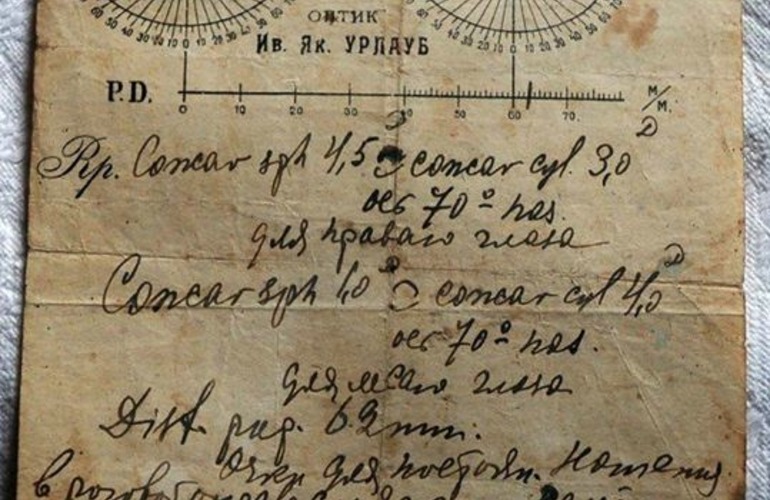 ОПТИК
Ив. Як. УРЛАУБ
P.D. М/М.
0 10 20 30 40 50 60 70.
Rp. Concav sph 4,5 D concav cyl. 3,0 D
ось 70° nas.
для праваго глаза
Concav sph 1,0 D concav cyl 4,0 D
ось 70° nas.
для леваго глаза
Dist. pup. 62 mm.
Очки для постоян. ношения
в